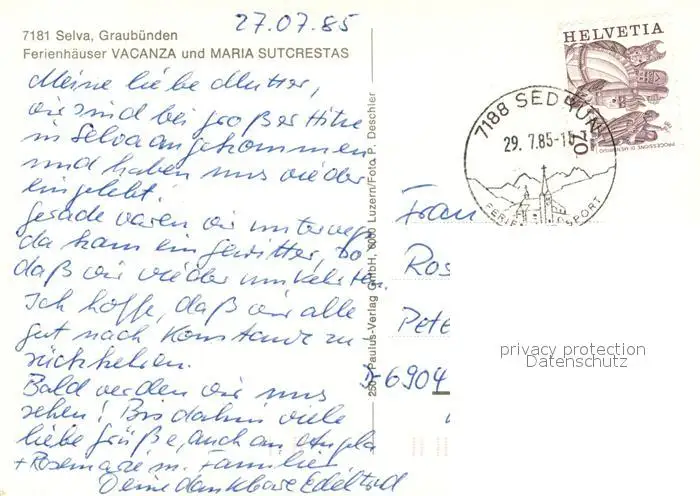 27.07.85
7181 Selva, Graubünden
Ferienhäuser VACANZA und MARIA SUTCRESTAS
Meine liebe Mutter,
wir sind bei großer Hitze
in Selva angekommen
und haben uns wieder
eingelebt.
Gerade waren wir unterwegs
da kam ein Gewitter, so
daß wir wieder umkehrten.
Ich hoffe, daß wir alle
gut nach Konstanz zu-
rückkehren.
Bald werden wir uns
sehen! Bis dahin viele
liebe Grüße, auch an Angela
+ Rosemarie m. Familie
Deine dankbare Edeltrud
250 Paulus-Verlag GmbH, 6000 Luzern/Foto P. Deschler
HELVETIA
70
PROCESSIONE DI MENDRISIO
7188 SEDRUN
29.7.85-1
FERIEN SPORT
Frau
Ros
Pete
D-6904
privacy protection
Datenschutz